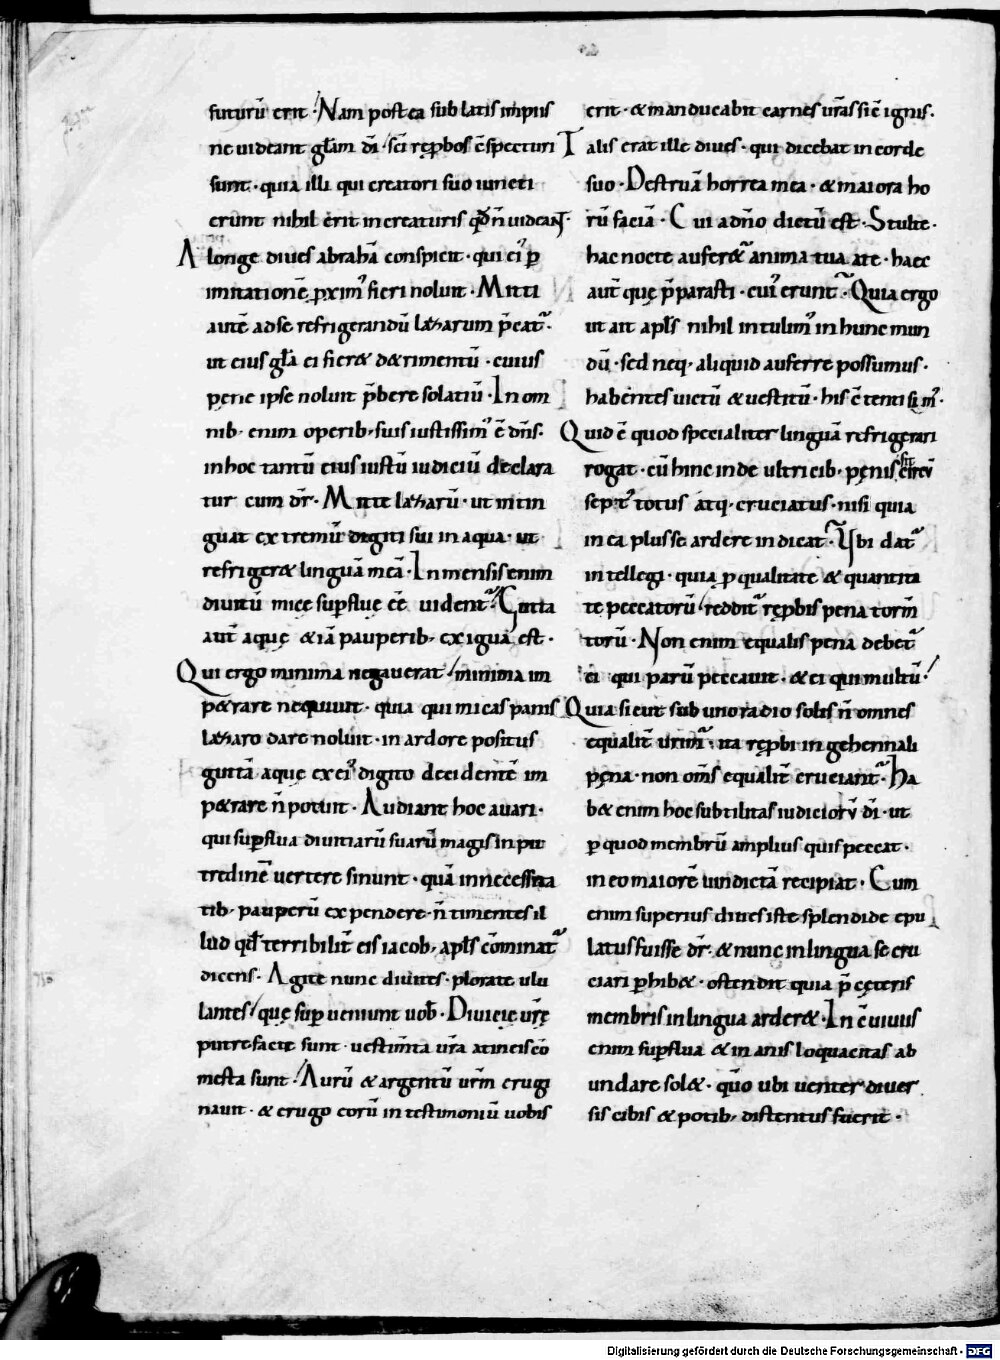 futurū erit · Nam postea sublatis impiis
ne uideant gl̄am dī · sc̄i rep̱bos c̄specturi
sunt · quia illi qui creatori suo iuncti
erunt nihil erit in creaturis qđ n̄ uideant ·
A longe diues abrahā conspicit · cui' ei' ꝑ
imitationē ꝓxim' fieri noluit · Mitti
autē ad se refrigerandū lazarum p̄cat᷑ ·
ut eius gl̄a ei fier& d&rimentū · cuius
pene ipse noluit p̄bere solatiū · In om
nib; enim operib; suis iustissim' ē dn̄s ·
in hoc tantū eius iustū iudiciū declara
tur cum dr̄ · Mitte lazarū · ut intin
guat extremū digiti sui in aqua · ut
refriger& linguā meā · In mensis enim
diuitū mice suꝑflue ēē uident᷑ · Gutta
aut̄ aquę &iā pauperib; exigua est ·
Qui ergo minima negauerat / minima im
p&rare nequiuit · quia qui micas panis
lazaro dare noluit · in ardore positus
guttā aquę ex ei' digito decidentē im
p&rare n̄ potuit · Audiant hoc auari ·
qui suꝑflua diuitiarū suarū magis in pu
tredinē uertere sinunt · quā in necessita
tib; pauperū expendere · n̄ timentes il
lud qđ terribilit̄ eis iacob; apl̄s cōminat᷑
dicens · Agite nunc diuites · plorate ulu
lantes / quę suꝑueniunt uob̄ · Diuicię ur̄ę
putrefactę sunt · uestim̄ta ur̄a a tineis cō
mesta sunt · Aurū & argentū ur̄m erugi
nauit · & erugo eorū in testimoniū uobis
erit · & manducabit carnes ur̄as sic̄ ignis ·
Talis erat ille diues · qui dicebat in corde
suo · Destruā horrea mea · & maiora ho
rū faciā · Cui a dn̄o dictū est · Stulte ·
hac nocte aufer&᷑ anima tua a te · haec
aut̄ quę p̄parasti · cui' erunt᷑ · Quia ergo
ut ait apl̄s nihil intulim' in hunc mun
dū · sed neq; aliquid auferre possumus ·
habentes uictū & uestitū · his c̄tenti sim' ·
Quid ē quod specialiter linguā refrigerari
rogat · cū hinc inde ultricib; pęnis circū
sept᷑ totus atq; cruciatus · nisi quia
in ea plus se ardere indicat᷑ · Ubi dat᷑
intellegi · quia ꝑ qualitate & quantita
te peccatorū / reddit᷑ rep̱bis pena torm̄
torū · Non enim equalis pena debet᷑
ei qui parū peccauit · & ei qui multū /
Quia sicut sub uno radio solis n̄ omnes
equalit̄ urim᷑ · ita rep̱bi in gehennali
pęna · non om̄s equalit̄ cruciant᷑ · Ha
b& enim hoc subtilitas iudiciorū dī · ut
ꝑ quod membrū amplius quis peccat ·
in eo maiorē uindictā recipiat · Cum
enim superius diues iste splendide epu
latus fuisse dr̄ · & nunc in lingua se cru
ciari ꝑhib& · ostendit quia p̄ cęteris
membris in lingua arder& · In c̄uiuiis
enim suꝑflua & inanis loquacitas ab
undare sol& · qn̄o ubi uenter diuer
sis cibis & potib; distentus fuerit ·
Digitalisierung gefördert durch die Deutsche Forschungsgemeinschaft - DFG